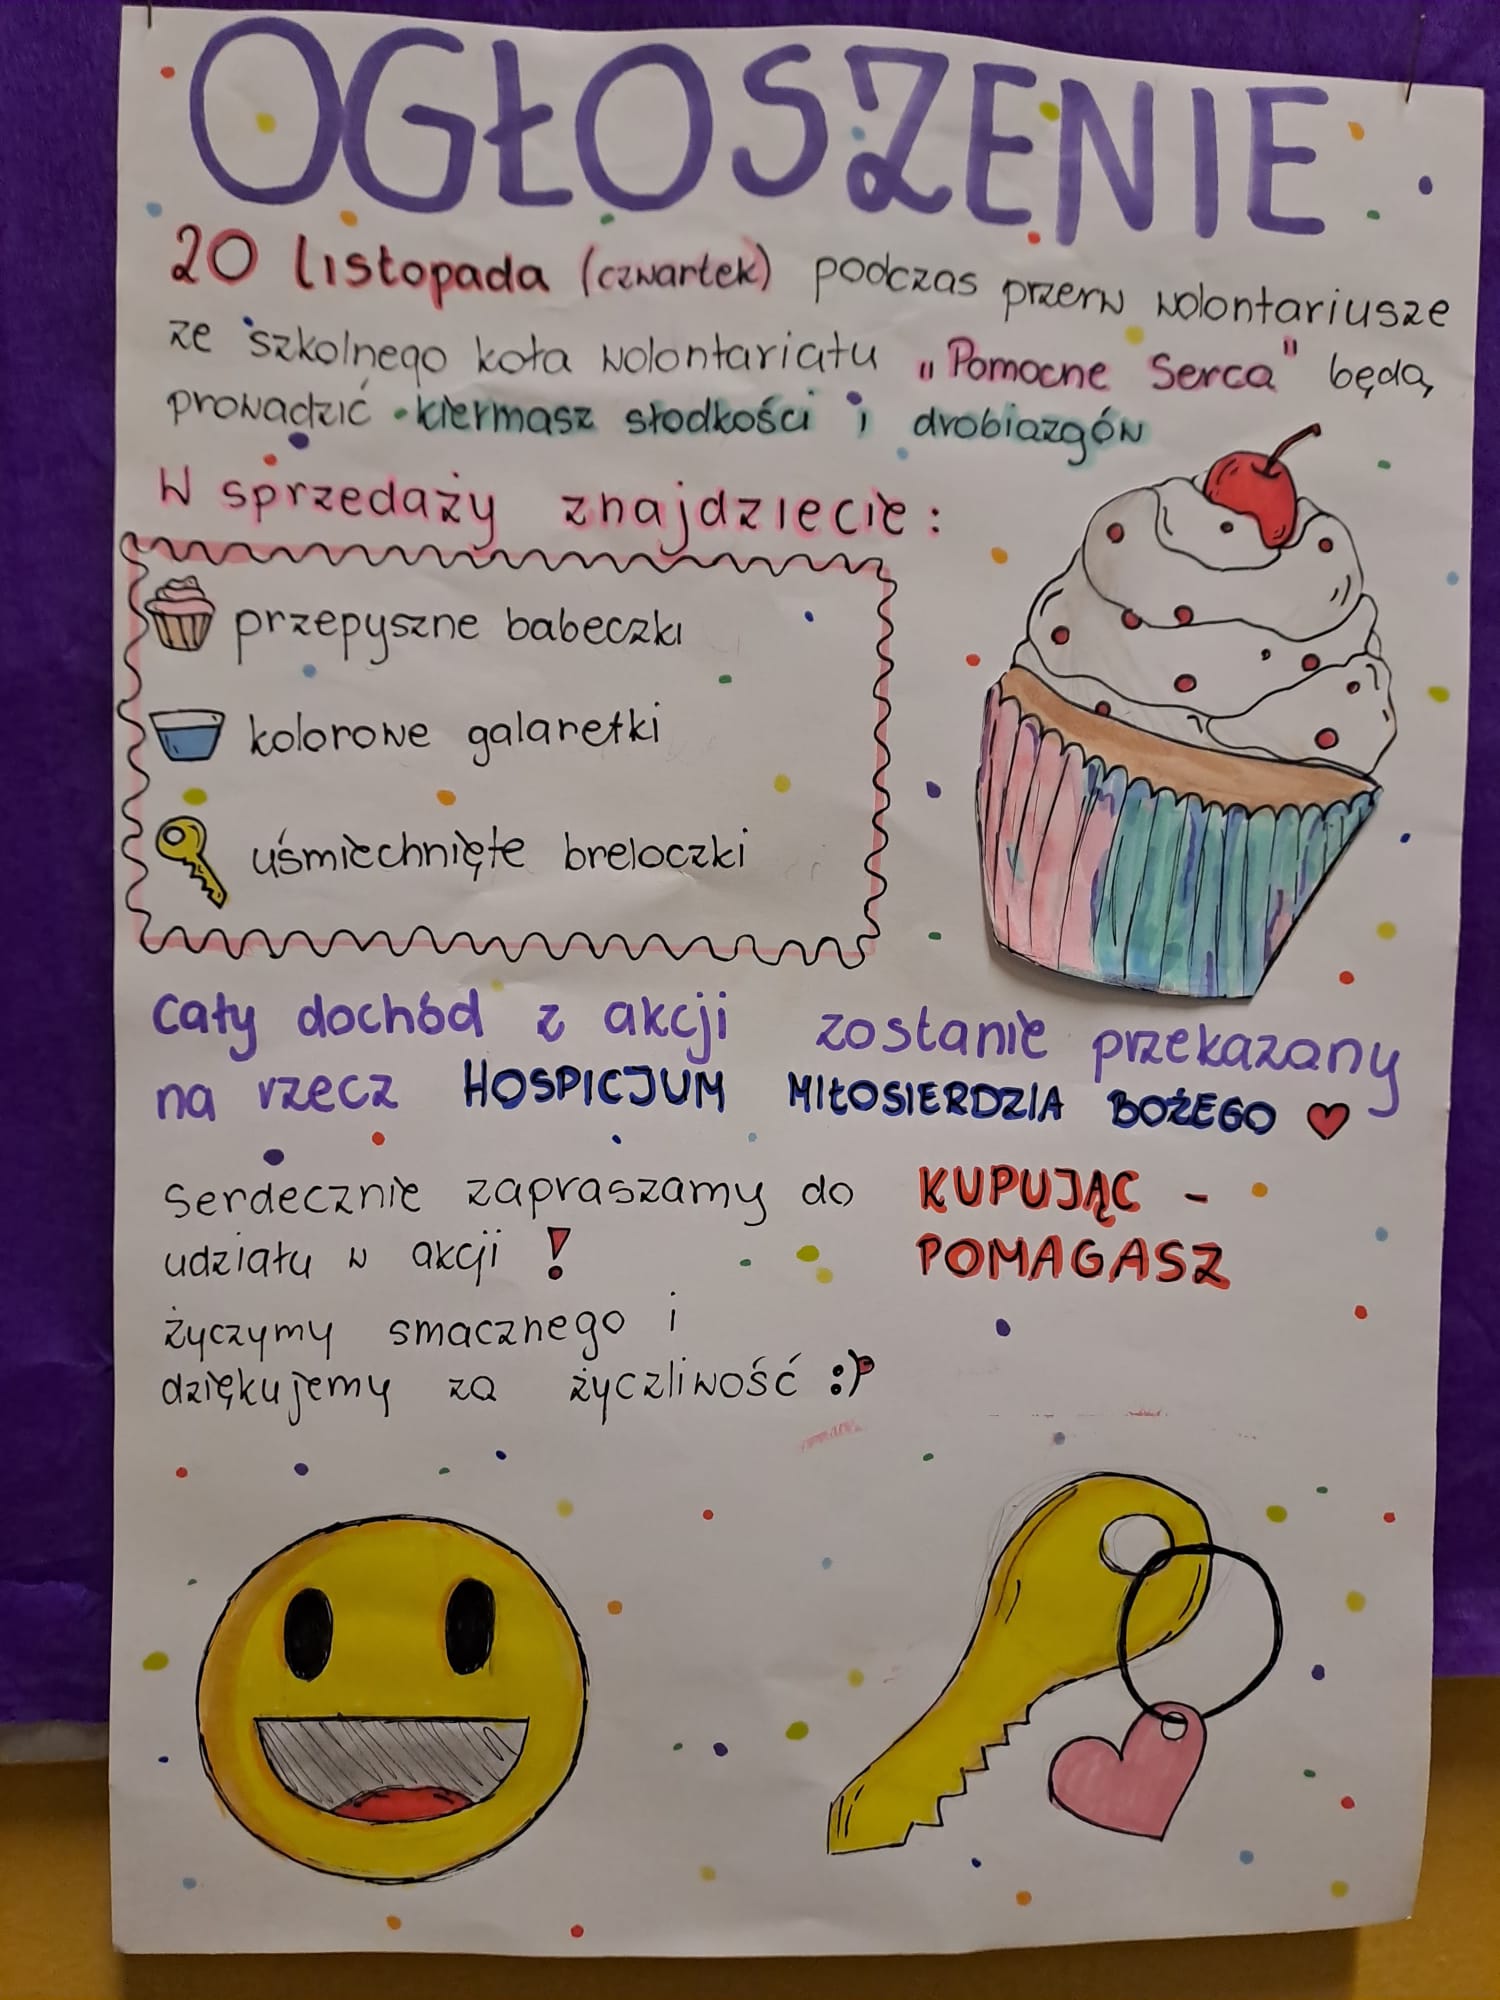 OGŁOSZENIE
20 listopada (czwartek) podczas przerw wolontariusze
ze szkolnego koła wolontariatu „Pomocne Serca" będą
prowadzić kiermasz słodkości i drobiazgów
W sprzedaży znajdziecie:
przepyszne babeczki
kolorowe galaretki
uśmiechnięte breloczki
Cały dochód z akcji zostanie przekazany
na rzecz HOSPICJUM MIŁOSIERDZIA BOŻEGO ♥
Serdecznie zapraszamy do
udziału w akcji !
KUPUJĄC -
POMAGASZ
życzymy smacznego i
dziękujemy za życzliwość :P